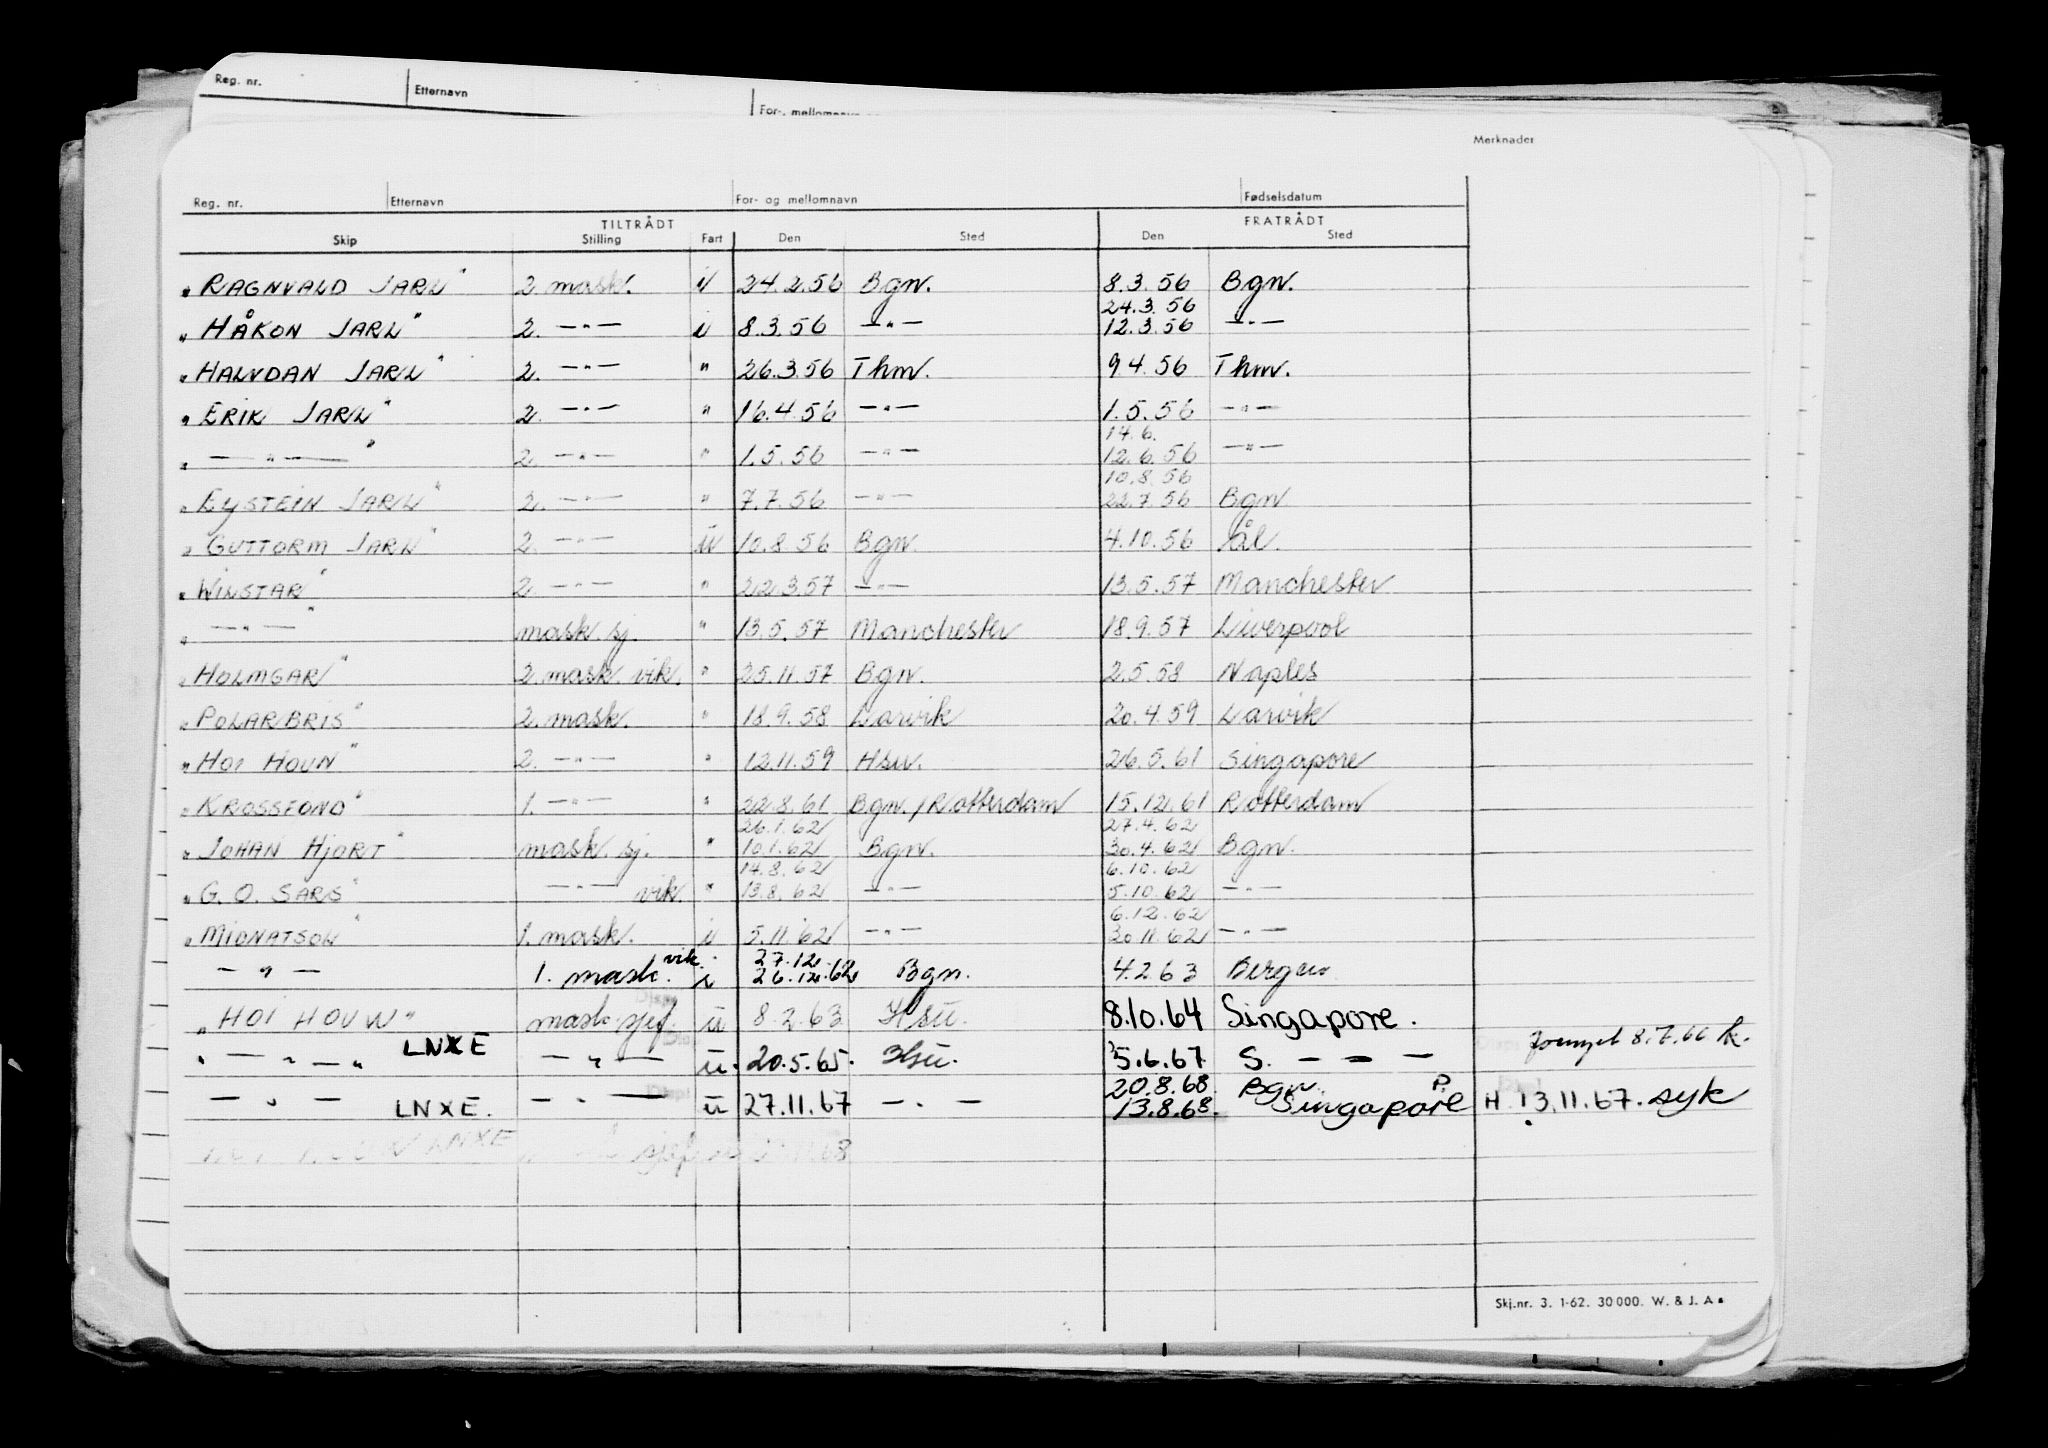 Reg. nr. Etternavn For-, mellomnavn
Merknader
Reg. nr. Etternavn For- og mellomnavn Fødselsdatum
TILTRÅDT FRATRÅDT
Skip Stilling Fart Den Sted Den Sted
„RAGNVALD JARL" 2. mask. i 24.2.56 Bgn. 8.3.56 Bgn.
24.3.56
„HÅKON JARL" 2. —"— i 8.3.56 —"— 12.3.56 —"—
„HALVDAN JARL" 2. —"— " 26.3.56 Thm. 9.4.56 Thm.
„ERIK JARL" 2. —"— " 16.4.56 —"— 1.5.56 —"—
14.6.
„—"—" 2. —"— " 1.5.56 —"— 12.6.56 —"—
10.8.56
„EYSTEIN JARL" 2. —"— " 7.7.56 —"— 22.7.56 Bgn
„GUTTORM JARL" 2. —"— u 10.8.56 Bgn. 4.10.56 Ål.
„WILSTAR" 2 —"— " 22.3.57 —"— 13.5.57 Manchester
„—"—" mask. sj. " 13.5.57 Manchester 18.9.57 Liverpool
„HOLMGAR" 2. mask. vik. " 25.11.57 Bgn. 2.5.58 Naples
„POLARBRIS" 2. mask. " 18.9.58 Larvik 20.4.59 Larvik
„HOI HOUW" 2. —"— " 12.11.59 Hsu. 26.5.61 Singapore
„KROSSFOND" 1. —"— " 22.8.61 Bgn./Rotterdam 15.12.61 Rotterdam
26.1.62 27.4.62
„JOHAN HJORT" mask. sj. " 10.1.62 Bgn. 30.4.62 Bgn.
14.8.62 6.10.62
„G.O. SARS" —"— vik. " 13.8.62 —"— 5.10.62 —"—
6.12.62
„MIDNATSOL" 1. mask. i 5.11.62 —"— 30.11.62 —"—
vik. 27.12.
—"— 1. mask. i 26.12.62 Bgn. 4.2.63 Bergen
„HOI HOUW" mask. sjef. u 8.2.63 Hsu. 8.10.64 Singapore.
„—"—" LNXE —"— u. 20.5.65. Hsu. 5.6.67 S. — — — 8.7.66
20.8.68 Bgn.
—"— LNXE. —"— u 27.11.67 —.— 13.8.68. Singapore H. 13.11.67. syk
LNXE sjef 68
Skj.nr. 3. 1-62. 30000. W. & J. A s